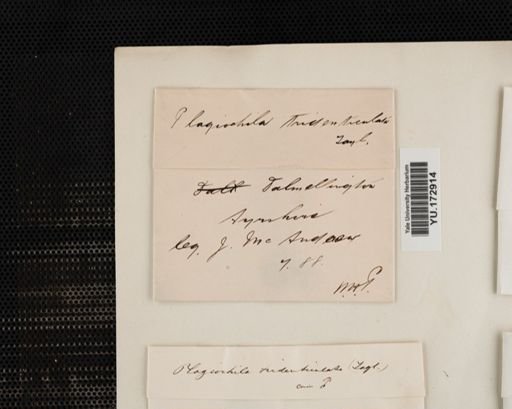 Plagiochila tridenticulata
Tayl.
Dald Dalmellington
Ayrshire
leg. J. McAndrew
7.88.
W.H.P.
Yale University Herbarium
YU.172914
Plagiochila tridenticulata (Tayl.)